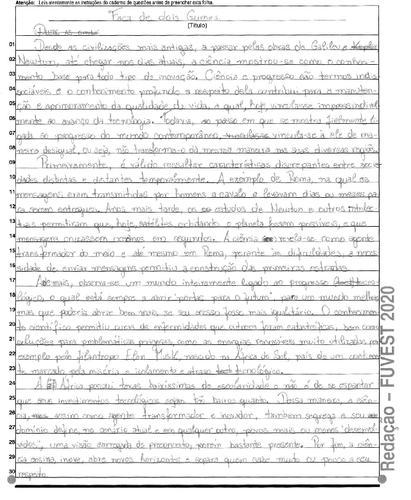 Atenção: Leia atentamente as instruções do caderno de questões antes de preencher esta folha.
Faca de dois Gumes
(Título)
01 Desde as civilizações mais antigas, a passar pelas obras de Galileu e
02 Newton, até chegar nos dias atuais, a ciência mostrou-se como o conheci-
03 mento base para todo tipo de inovação. Ciência e progresso são termos indis-
04 sociáveis e o conhecimento profundo a respeito dela contribui para a manuten-
05 ção e aprimoramento da qualidade da vida, a qual, hoje, vincula-se
06 mente ao avanço da tecnologia. Todavia, ao passo em que se mostra
07 gada ao progresso do mundo contemporâneo, vincula-se a ele de ma-
08 neira desigual, ou seja, não transforma-o da mesma maneira nas suas diversas regiões.
09 Primeiramente, é válido ressaltar características discrepantes entre socie-
10 dades distintas e distantes temporalmente. A exemplo de Roma, na qual as
11 mensagens eram transmitidas por homens a cavalo e levavam dias ou meses pa-
12 ra serem entregues. Anos mais tarde, os estudos de Newton e outros
13 permitiram que, hoje, satélites orbitando o planeta fossem possíveis, e que
14 mensagens cruzassem em segundos. A ciência revela-se como agente
15 transformador do meio e até mesmo em Roma, perante as dificuldades, a neces-
16 sidade de enviar mensagens permitiu a construção das primeiras estradas.
17 Ademais, observa-se um mundo inteiramente ligado ao progresso
18 lógico, o qual está sempre a abrir "portas para o futuro", para um mundo melhor
19 mas que poderia abrir bem mais, se seu acesso fosse mais igualitário. O conhecimen-
20 to científico permitiu curas de enfermidades que outrora foram catastróficas, bem como
21 soluções para problemáticas
22 exemplo pelo filantropo Elon Musk, nascido na África do Sul, país de um continen-
23 te marcado pela miséria e isolamento e atraso tecnológico.
24 A África possui taxas baixíssimas de escolaridade e não é de se espantar
25 que seus investimentos tecnológicos sejam tão baixos quanto. Dessa maneira, a ciên-
26 cia, assim como agente transformador e inovador, também segrega e seu
27 domínio define, no cenário atual e em qualquer outro, povos mais ou menos "desenvol-
28 vidos", uma visão carregada de preconceito, porém bastante presente. Por fim, a ciên-
29 cia ensina, move, abre novos horizontes e separa quem sabe muito ou pouco a seu
30 respeito.
Redação – FUVEST 2020